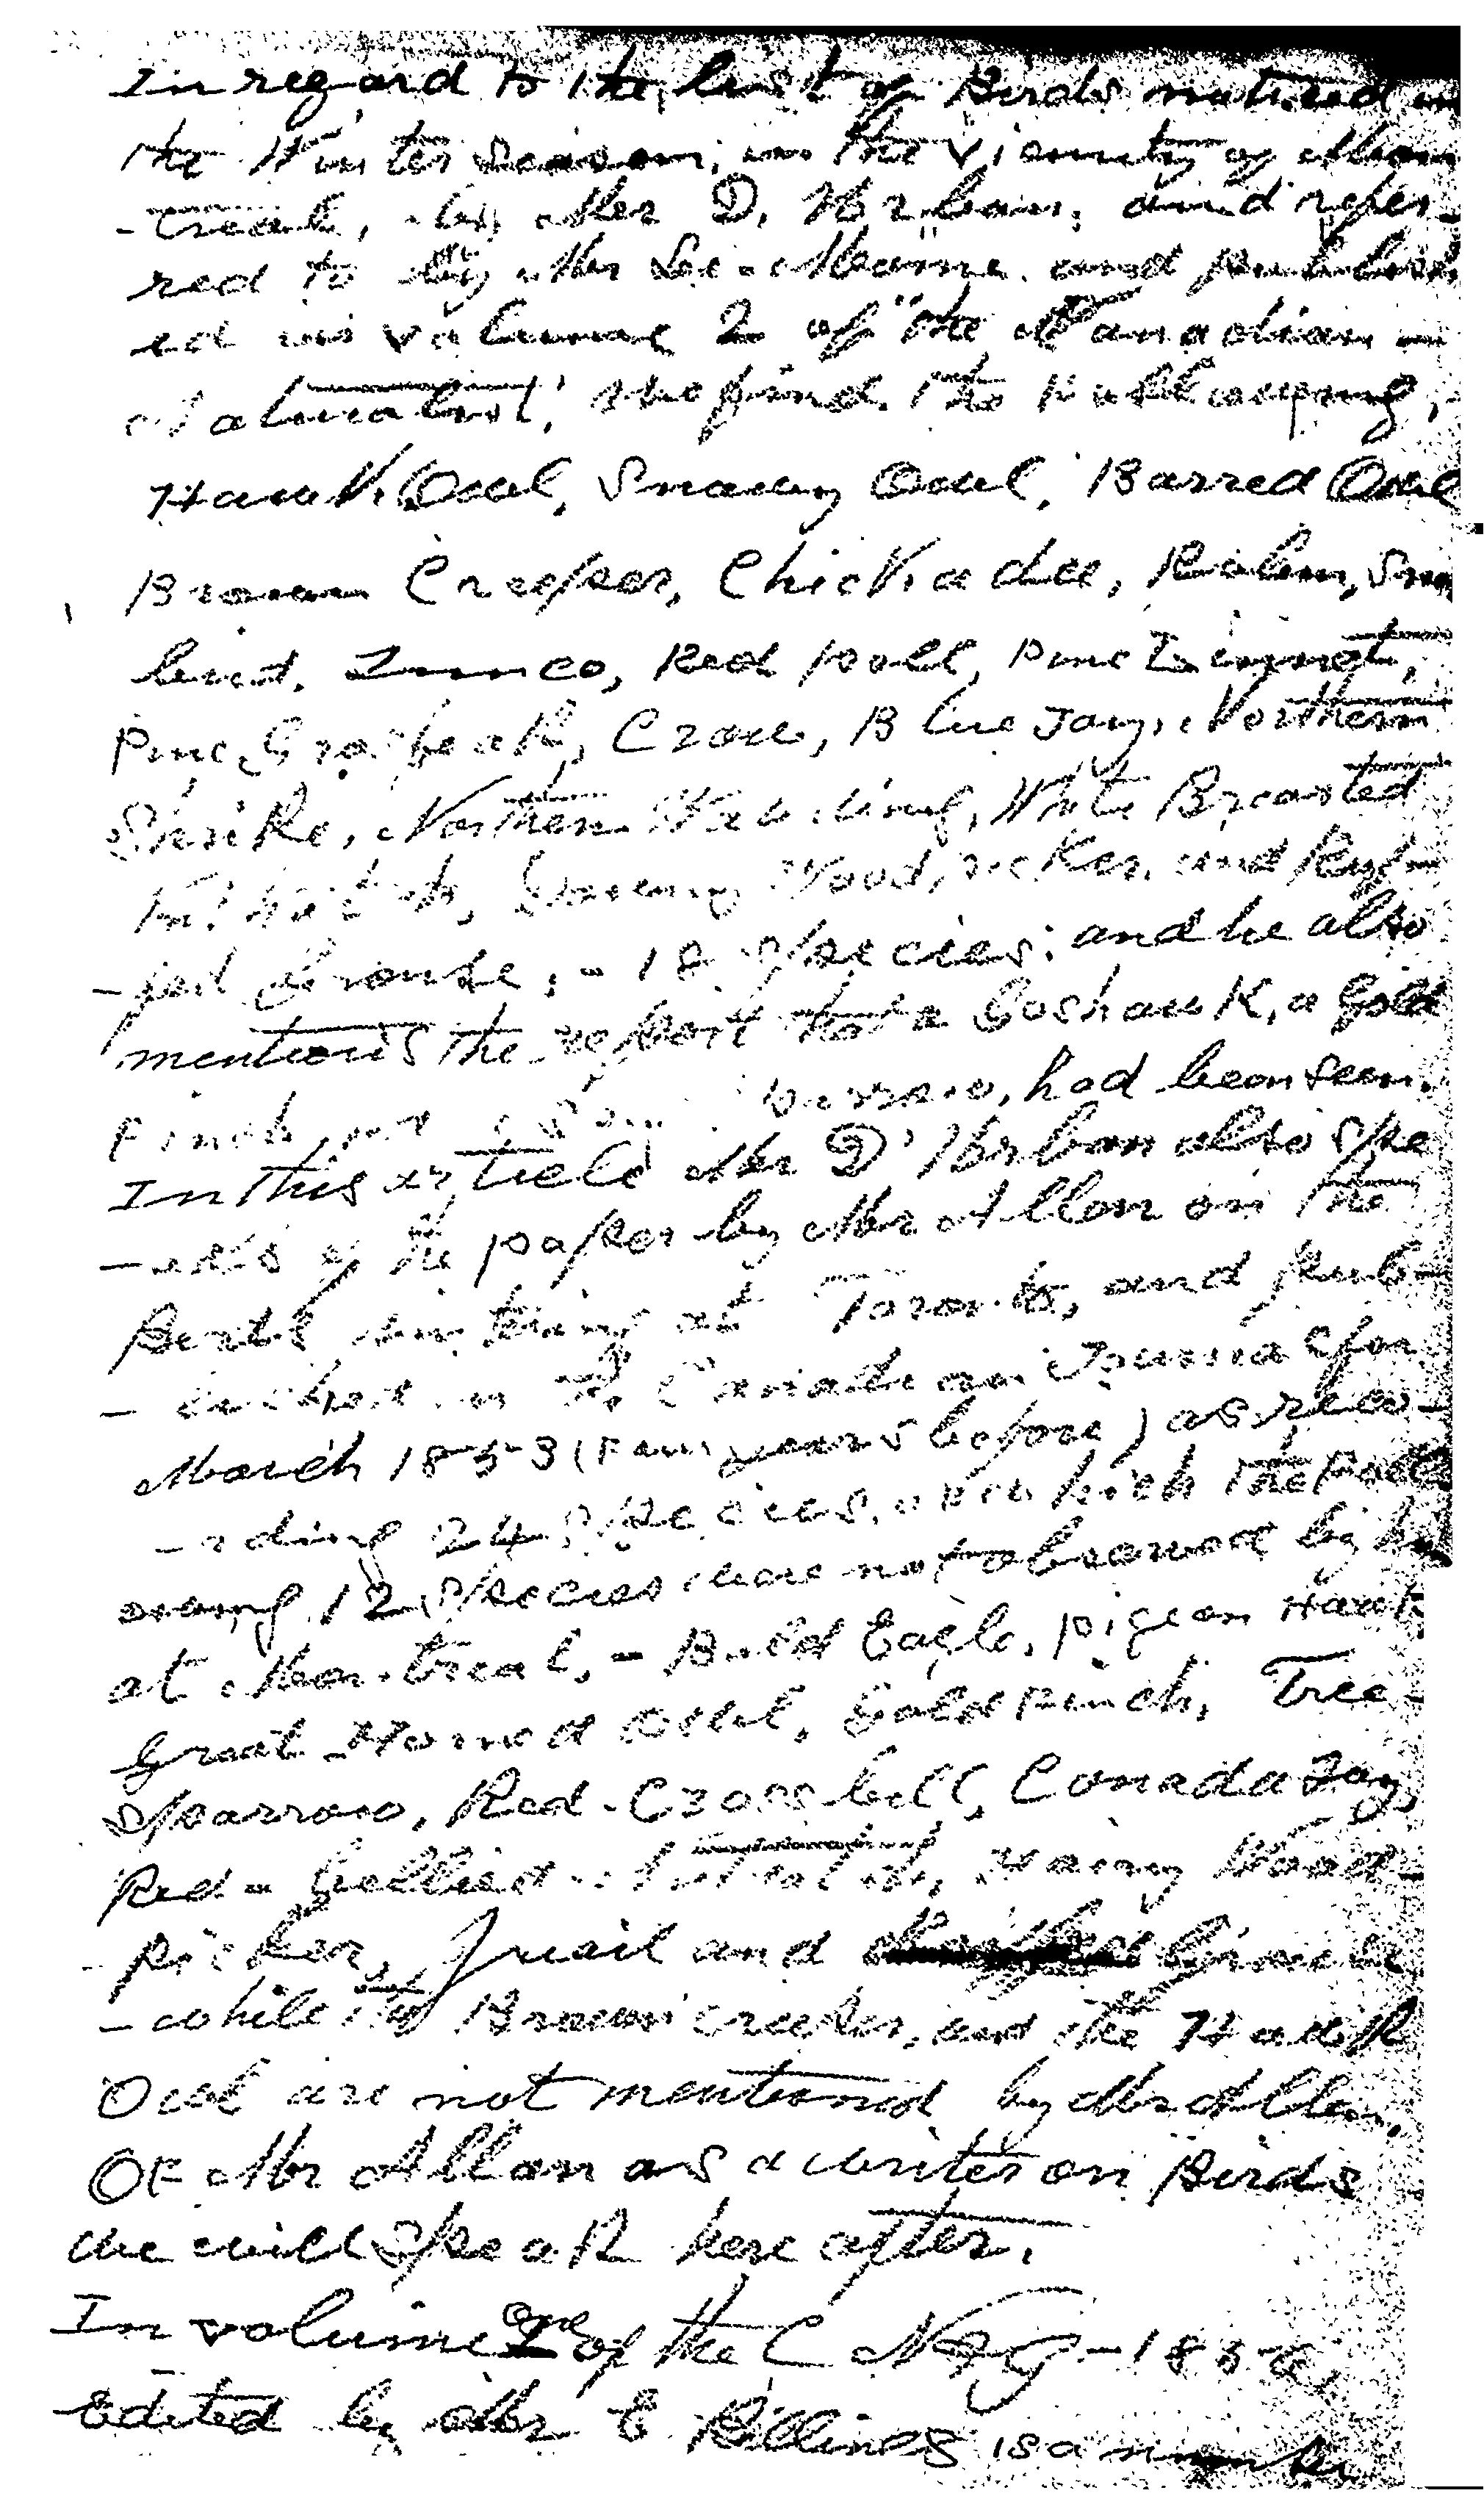 In regard to the list of Birds noticed in
the Winter Season, in the vicinity of Mon
-treal, by Mr D, Urban, and refer-
red to by Mr Le-Moine and publish
ed in volume 2 of "the Canadian
Naturalist, we find the following,
Hawk Owl, Snowy Owl, Barred Owl
Brown Creeper, Chickadee, Robin, Snow
bird, Junco, Red poll, Pine Linnet,
Pine Grosbeak, Crow, Blue Jay, Northern
Shrike, Northern Waxwing, White Breasted
Nuthatch, Downy Woodpecker, and Ruf-
-fed Grouse, - 18 Species; and he also
mentions the report that a Goshawk, a Gold
Finch, and a Song Sparrow, had been seen.
In this article Mr D'Urban also spe
-aks of the paper by Mr Allan on the
Birds wintering at Toronto, and pub-
-lished in the Canadian Journal for
March 1853 (Four years before) as reco-
-rding 24 Species, of which the foll
owing 12 Species were not observed by him
at Montreal, - Bald Eagle, Pigeon Hawk
Great Horned Owl, Gold Finch, Tree
Sparrow, Red-Crossbill, Canada Jay,
Red-bellied Nuthatch, Hairy Wood-
-pecker, Quail and Grouse
-while the Brown creeper, and the Hawk
Owl are not mentioned by Mr Allan.
OF Mr Allan as a writer on Birds
we will speak here after.
In volume one of the C N & G - 1856
Edited by Mr E Billings is a